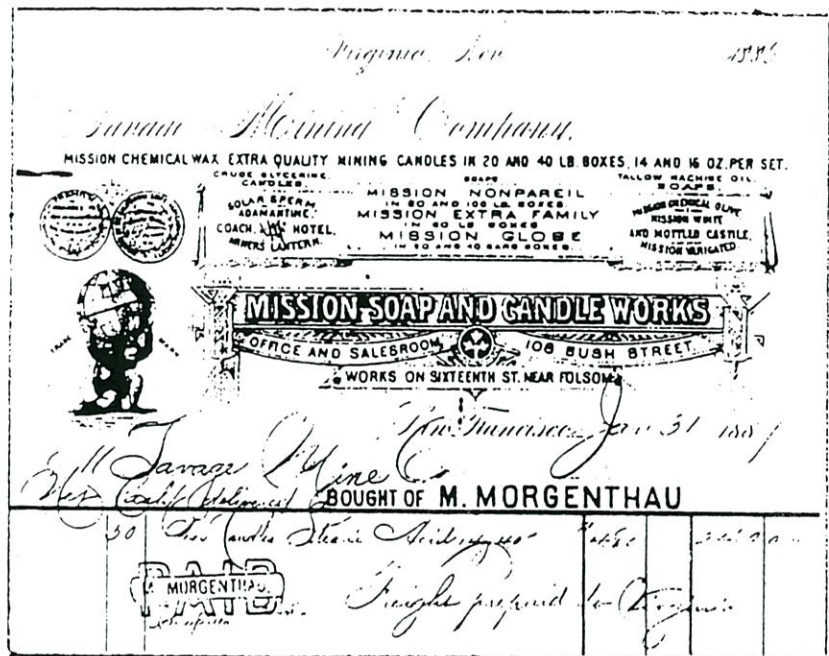 Virginia, Nev 188
Savage Mining Company.
MISSION CHEMICAL WAX EXTRA QUALITY MINING CANDLES IN 20 AND 40 LB. BOXES, 14 AND 16 OZ. PER SET.
CRUDE GLYCERINE.
CANDLES.
SOLAR SPERM
ADAMANTINE.
COACH, HOTEL,
MINERS LANTERN.
SOAPS
MISSION NONPAREIL
IN 20 AND 100 LB. BOXES.
MISSION EXTRA FAMILY
IN 40 LB BOXES
MISSION GLOBE
IN 20 AND 40 BARS BOXES.
TALLOW MACHINE OIL.
SOAPS.
MISSION CHEMICAL OLIVE
MISSION WHITE
AND MOTTLED CASTILE,
MISSION VARIGATED.
TRADE MARK
MISSION SOAP AND CANDLE WORKS
OFFICE AND SALESROOM 108 BUSH STREET
WORKS ON SIXTEENTH ST. NEAR FOLSOM
San Francisco, Jan 31 1887
M Savage Mine Co
BOUGHT OF M. MORGENTHAU
50 Candles Stearic Acid
M. MORGENTHAU
PAID
Freight prepaid to Virginia